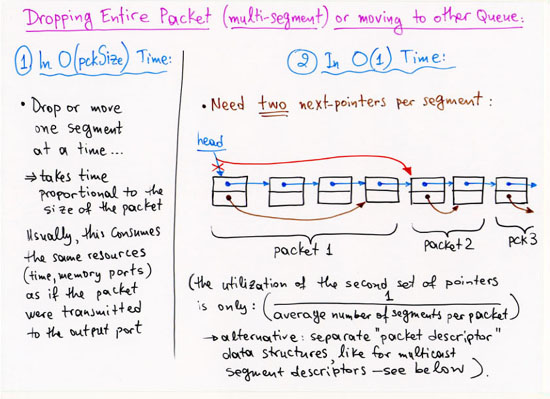 Dropping Entire Packet (multi-segment) or moving to other Queue:
① In O(pckSize) Time:
• Drop or move
one segment
at a time...
⇒ takes time
proportional to the
size of the packet
Usually, this consumes
the same resources
(time, memory ports)
as if the packet
were transmitted
to the output port
② In O(1) Time:
• Need two next-pointers per segment:
head
packet 1
packet 2
pck 3
(the utilization of the second set of pointers
is only: (1 / average number of segments per packet)
→ alternative: separate "packet descriptor"
data structures, like for multicast
segment descriptors – see below).